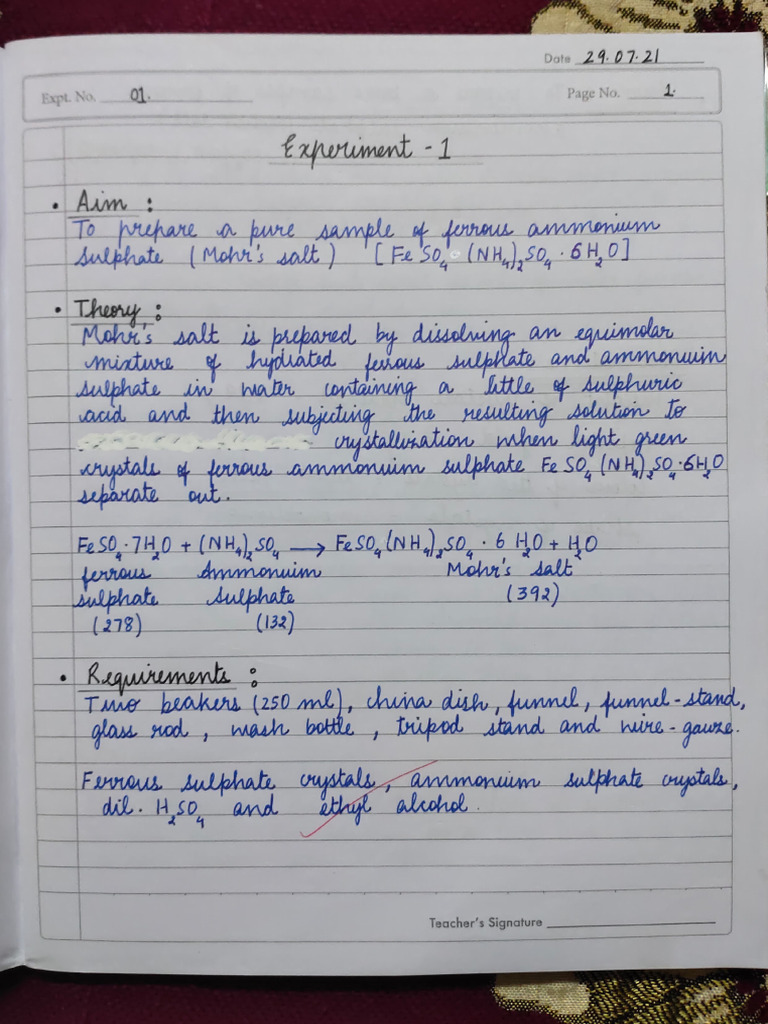 Date 29.07.21
Expt. No. 01.
Page No. 1.
Experiment - 1
• Aim :
To prepare a pure sample of ferrous ammonium
sulphate (Mohr's salt) [FeSO₄·(NH₄)₂SO₄·6H₂O]
• Theory :
Mohr's salt is prepared by dissolving an equimolar
mixture of hydrated ferrous sulphate and ammonium
sulphate in water containing a little of sulphuric
acid and then subjecting the resulting solution to
crystallization when light green
crystals of ferrous ammonium sulphate FeSO₄(NH₄)₂SO₄·6H₂O
separate out.
FeSO₄·7H₂O + (NH₄)₂SO₄ → FeSO₄(NH₄)₂SO₄·6H₂O + H₂O
ferrous Ammonium Mohr's salt
sulphate Sulphate (392)
(278) (132)
• Requirements :
Two beakers (250 ml), china dish, funnel, funnel-stand,
glass rod, wash bottle, tripod stand and wire-gauze.
Ferrous sulphate crystals, ammonium sulphate crystals,
dil. H₂SO₄ and ethyl alcohol.
Teacher's Signature